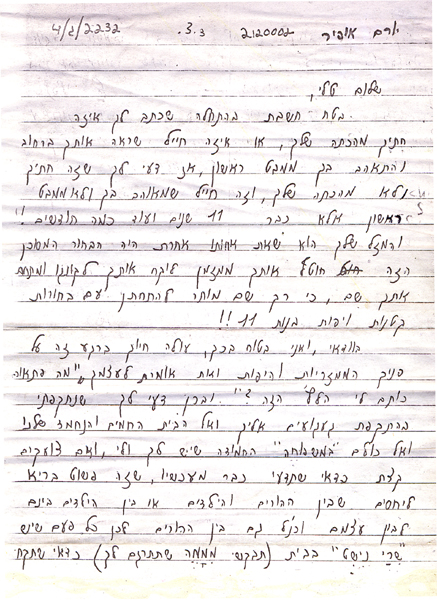 יורם אופיר 2120002 3.3. 4/ג/2232
שלום טלי,
בטח חשבת בהתחלה שכתב לך איזה
חתיך מהכתה שלך, או איזה חייל שראה אותך ברחוב
והתאהב בך ממבט ראשון, אז דעי לך שזה חתיך
ולא מהכתה שלך, וזה חייל שמאוהב בך ולא ממבט
ראשון אלא כבר 11 שנים ועוד כמה חודשים!!
והמזל שלך הוא שאת אחותו אחרת היה הבחור המסוכן
הזה חוטף אותך ממזמן לוקח אותך לקונגו ומתחתן
אתך שם, כי רק שם מותר להתחתן עם בחורות
קטנות ויפות בנות 11!!
בוודאי, ואני בטוח בכך, עולה חיוך ברקע זה על
פניך הממזריות והיפות ואת אומרת לעצמך "מה פתאום
כותב לי הלץ הזה?". ובכן דעי לך שנתקפתי
בהתקפת געגועים אליך ואל הבית החמים והנחמד שלנו
ואל כולם "במשפוחה" החמודה שיש לך ולי, ואם צועקים
קצת כדאי שתדעי כבר מעכשיו, שזה פשוט בריא
ליחסים שבין ההורים והילדים או בין הילדים בינם
לבין עצמם וכנ"ל גם בין ההורים לכן כל פעם שיש
"שרי נישט" בבית (תבקשי מממה שתתרגם לך) כדאי שתקח